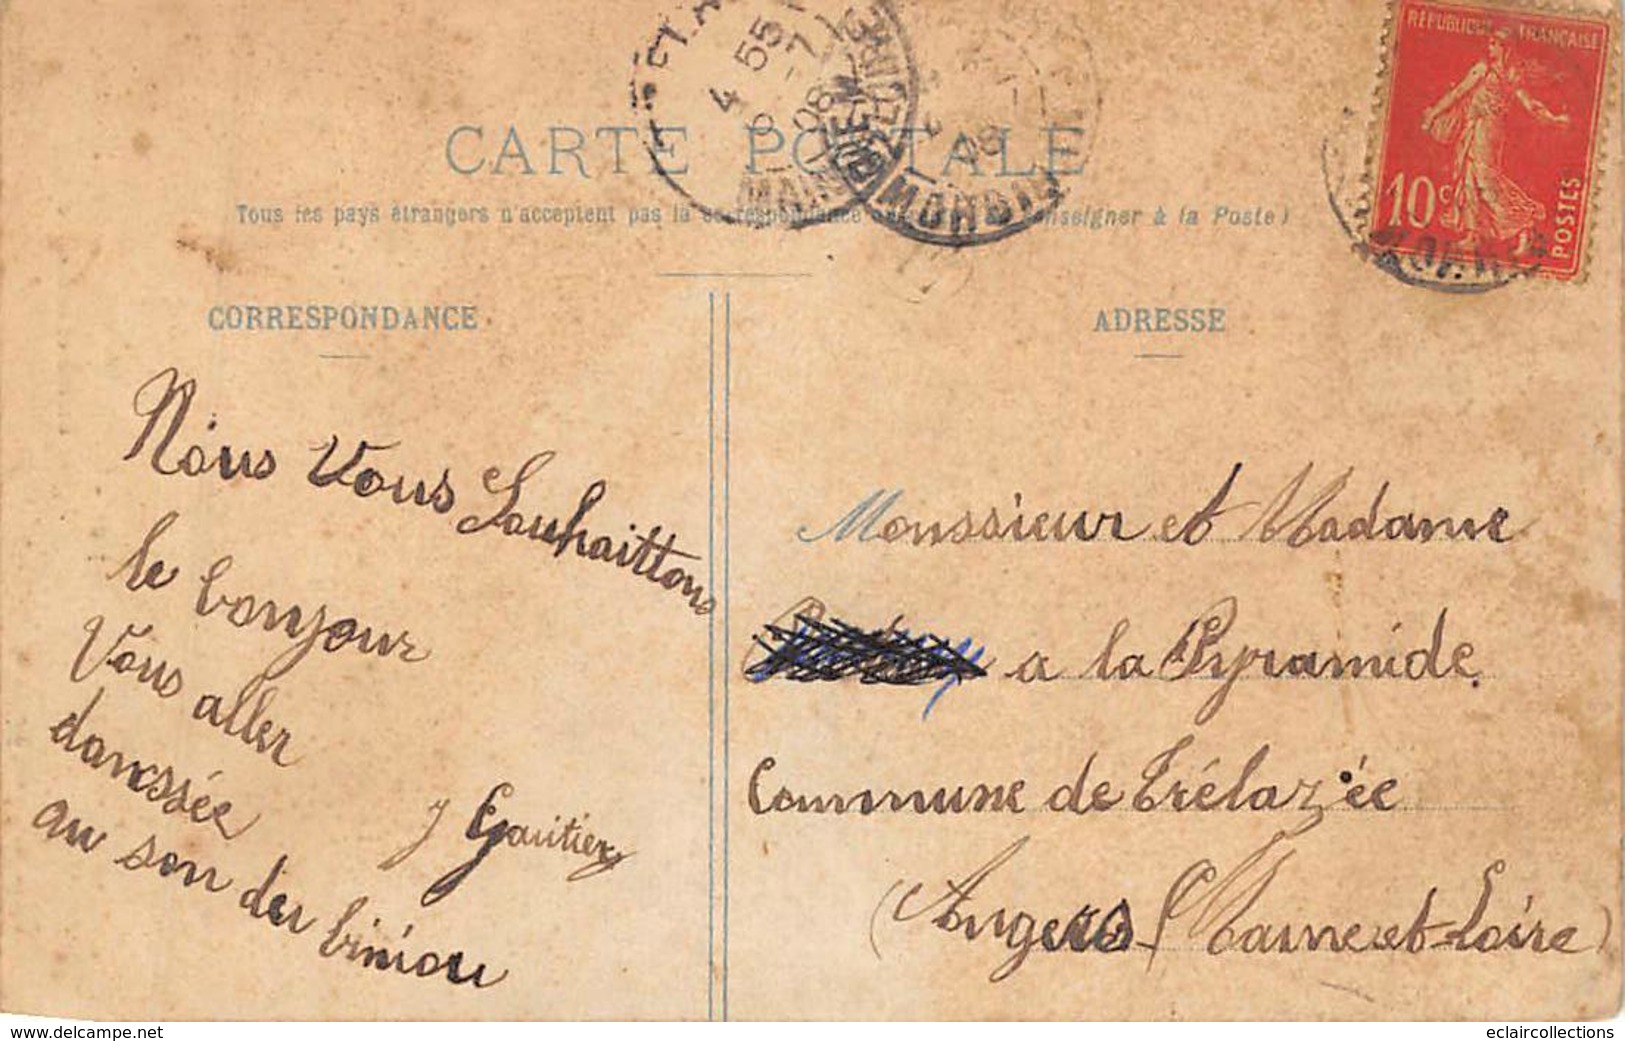 CARTE POSTALE
Tous les pays étrangers n'acceptent pas la correspondance enseigner à la Poste)
RÉPUBLIQUE FRANÇAISE
10c
POSTES
4 55
6 - 7
08
MAIN
MORBIHAN
CORRESPONDANCE
ADRESSE
Nous Vous Souhaittons
le bonjour
Vous aller
danssée
au son du biniou
J Gautier
Monssieur et Madame
a la Pyramide
Commune de Trélazée
(Angers Maine et Loire)
www.delcampe.net
eclaircollections